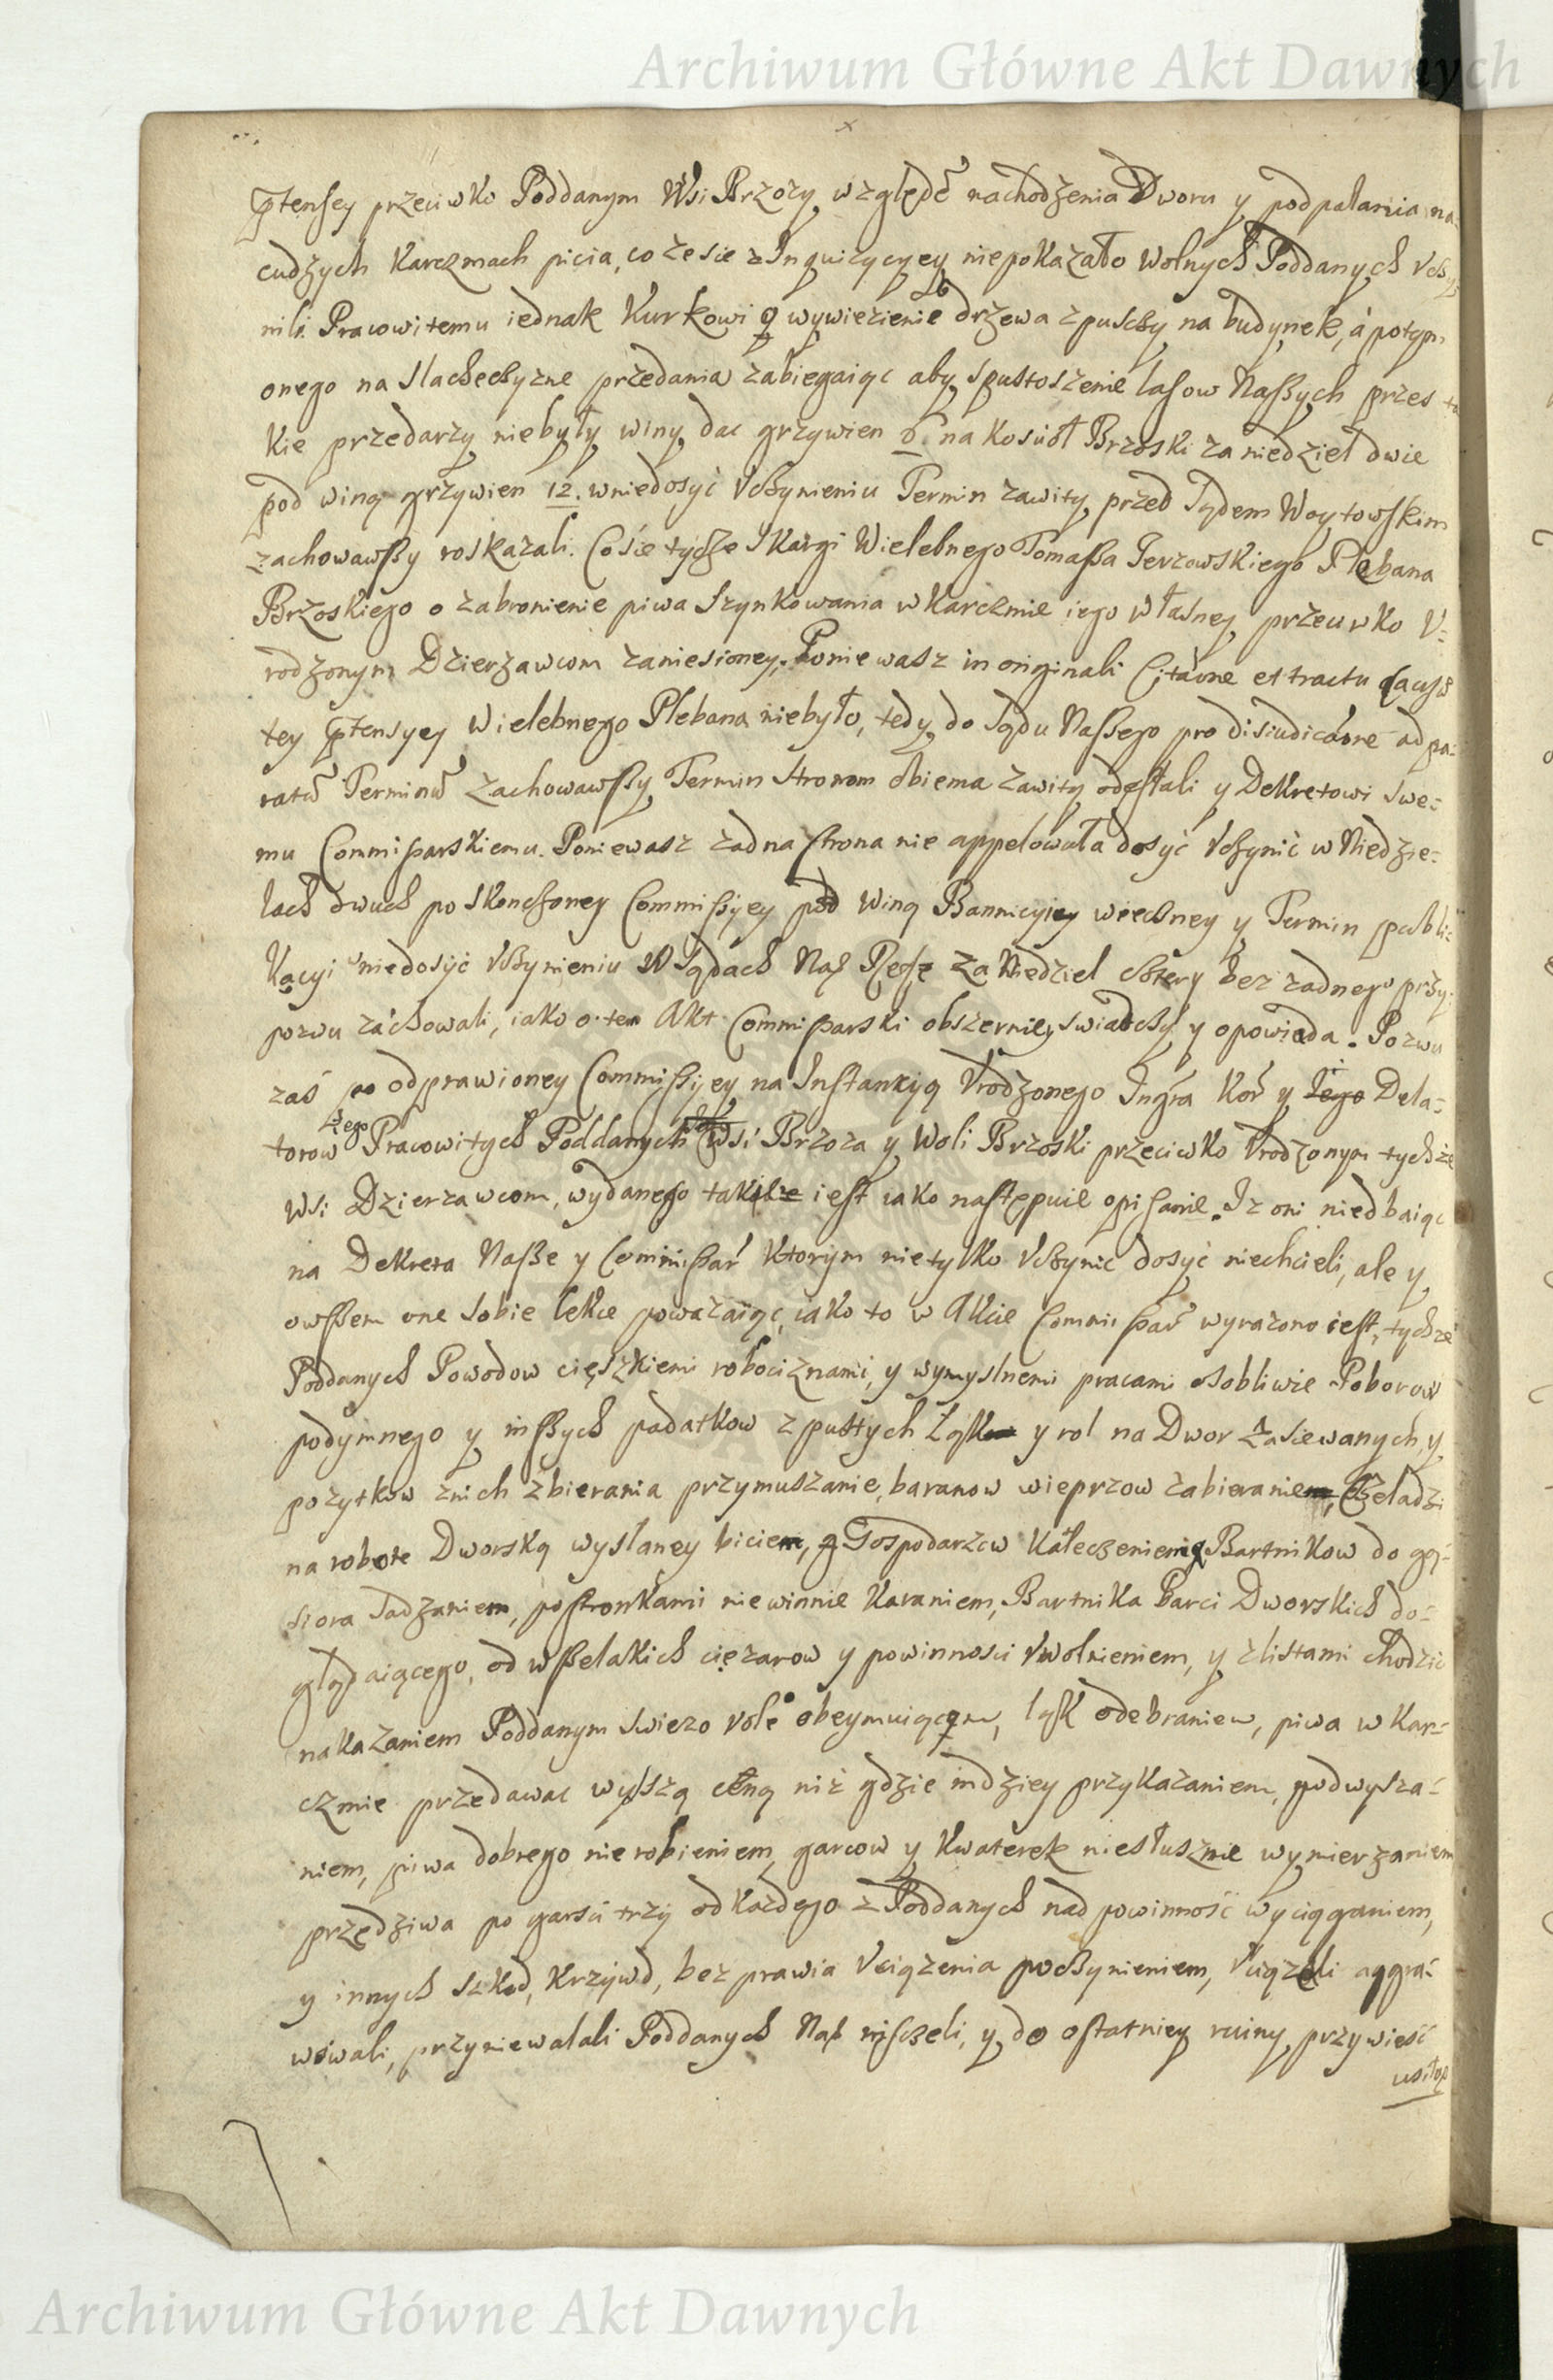 Archiwum Główne Akt Dawnych
ptensey przeciwko Poddanym Wsi Brzozy względē nachodzenia Dworu y podpalania na
cudzych Karczmach picia, co ze sie z Inquizycyey niepokazało wolnych Poddanych vczy=
nili. Pracowitemu iednak Kurkowi o wywiezienie drzewa zpuszczy na budynek, á potym
onego na Slachecczyzne przedania zabiegaiąc aby spustoszenie lasow Naszych przes ta
kie przedarzy niebyły winy dac grzywien 6 na kosciół Brzoski za niedziel dwie
pod winą grzywien 12. w niedosyć vczynieniu Termin zawity przed Sądem Woytowskim
zachowawszy roskazali. Co sie tycze skargi Wielebnego Tomasza Jerzowskiego Plebana
Brzoskiego o zabronienie piwa szynkowania w Karczmie iego własney przeciwko V=
rodzonym Dzierzawcom zaniesioney, Poniewasz in originali Citaone et tractu causæ
tey ptensyey Wielebnego Plebana niebyło, tedy do sądu Naszego pro disiudicaone ad pa=
ratū Terminū zachowawszy Termin stronom obiema zawity odesłali y Dekretowi swe=
mu Commissarskiemu. Poniewasz zadna strona nie appelowała dosyć vczynić w Niedzie=
lach dwuch po skonczoney Commissyey pod winą Bannicyiey wieczney y Termin publi=
kacyi niedosyć vczynieniu w Sądach Nasz za Niedziel cztery bez zadnego przy=
pozwu záchowali, iako o tem Akt Commissarski obszerniey swiadczy y opowiada. Pozwu
zaś po odprawioney Commissyey na Instankyą Vrodzonego Ingra Kor y Iego Dela=
torow Iego Pracowitych Poddanych Wsi Brzoza y Woli Brzoski przeciwko Vrodzonym tychże
Wsi Dzierzawcom, wydanego takie iest iako następuie opisanie. Iz oni niedbaiąc
na Dekreta Nasze y Commissar Ktorym nietylko vczynić dosyć niechcieli, ale y
owszem one sobie lekce powazaiąc, iako to w Akcie Commissar wyrazono iest, tychze
Poddanych Powodow cięszkiemi robociznami, y wymyslnemi pracami osobliwie Poborow
podymnego y inszych podatkow z pustych Łąk y rol na Dwor zasiewanych y
pozytkow znich zbierania przymuszanie, baranow wieprzow zabieranie, Czeladzi
na robote Dworską wysłaney biciem, Gospodarzow Kaleczeniem Bartnikow do gą=
siora sadzaniem, postronkami niewinnie karaniem, Bartnika Barci Dworskich do=
glądaiącego, od wszelakich ciężarow y powinnosci vwolnieniem, y z listami chodzic
nakazaniem Poddanym swiezo role obeymuiącym, łąk odebraniem, piwa w Kar=
czmie przedawac wyszszą ceną niż gdzie indziey przykazaniem, podwysza=
niem, piwa dobrego nierobieniem, garcow y Kwaterek niesłusznie wymierzaniem
przędziwa po garsci trzy od kazdego z Poddanych nad powinność wyciąganiem,
y innych szkod, krzywd, bezprawia vciązenia poczynieniem, vciązali aggra=
wowali, przyniewalali Poddanych Nasz niszczeli, y do ostatniey ruiny przywieść
usiłuą
Archiwum Główne Akt Dawnych